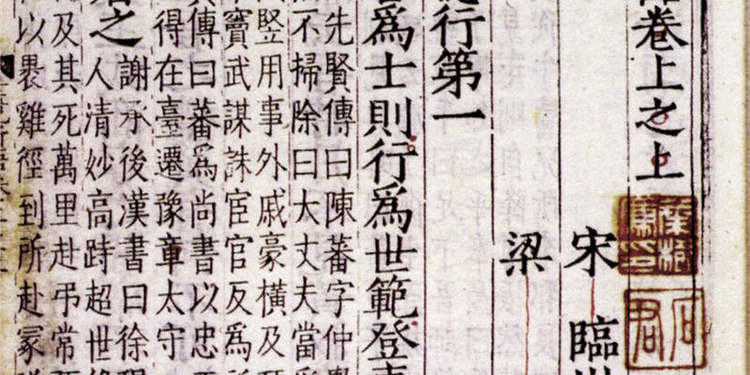 卷上之上
宋 臨
梁
行第一
爲士則行爲世範登
先賢傳曰陳蕃字仲
不掃除曰大丈夫當
豎用事外戚豪橫及
竇武謀誅宦官反爲
傳曰蕃爲尚書以忠
得在臺遷豫章太守
之
謝承後漢書曰徐
人清妙高跱超世
及其死萬里赴弔常
以裹雞徑到所赴冢